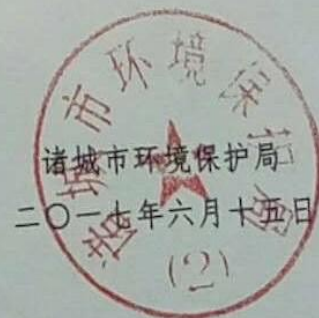 诸城市环境保护局
诸城市环境保护局
二〇一七年六月十五日
(2)